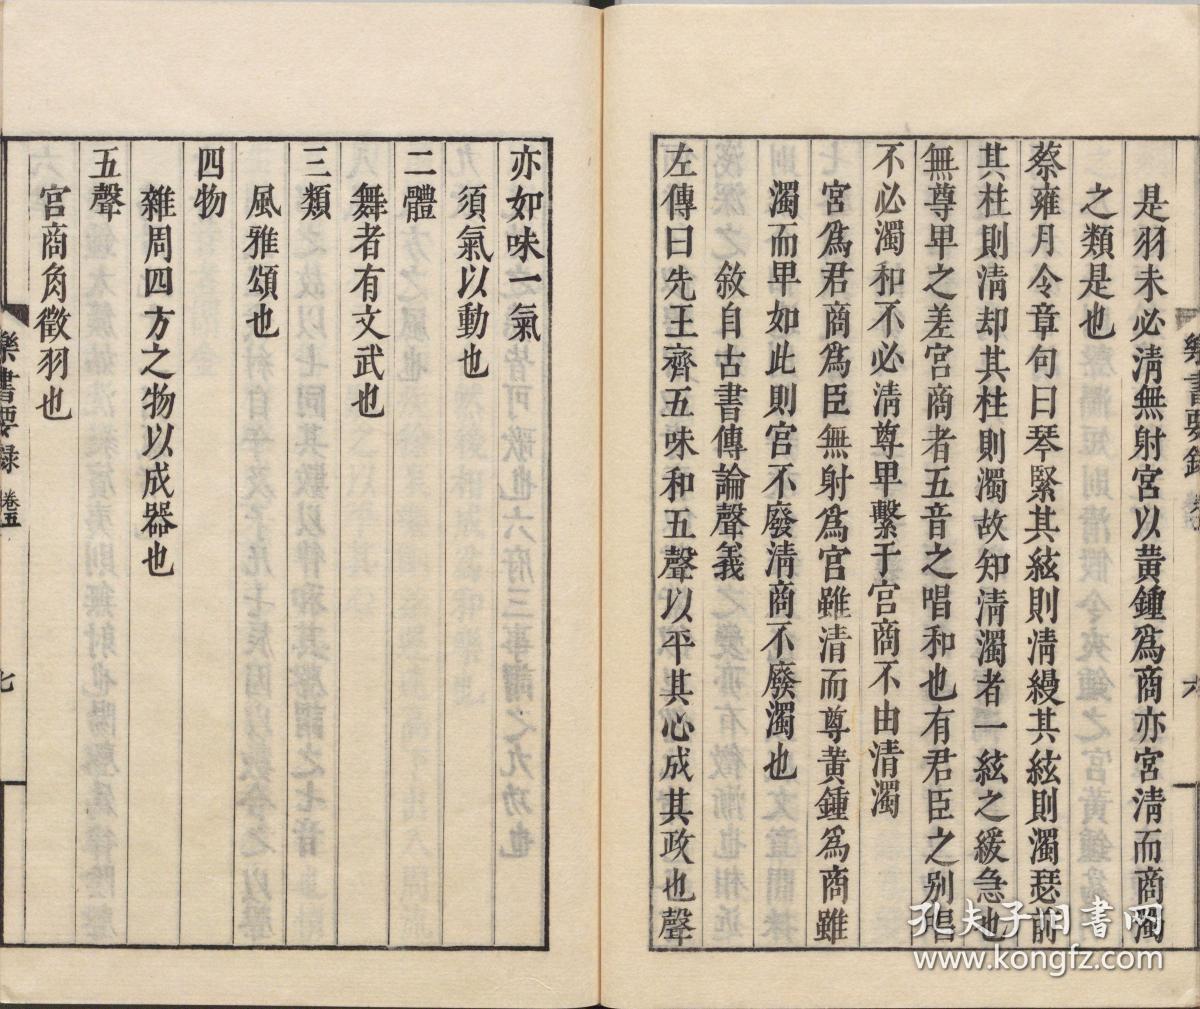 是羽未必淸無射宮以黃鍾爲商亦宮淸而商濁
之類是也
蔡雍月令章句曰琴緊其絃則淸縵其絃則濁瑟前
其柱則淸却其柱則濁故知淸濁者一絃之緩急也
無尊卑之差宮商者五音之唱和也有君臣之别唱
不必濁和不必淸尊卑繫于宮商不由清濁
宮爲君商爲臣無射爲宮雖清而尊黃鍾爲商雖
濁而卑如此則宮不廢淸商不廢濁也
敘自古書傳論聲義
左傳曰先王齊五味和五聲以平其心成其政也聲
樂書要錄
六
亦如味一氣
須氣以動也
二體
舞者有文武也
三類
風雅頌也
四物
雜周四方之物以成器也
五聲
宮商角徵羽也
樂書要録 卷五
七
孔夫子旧书网
www.kongfz.com